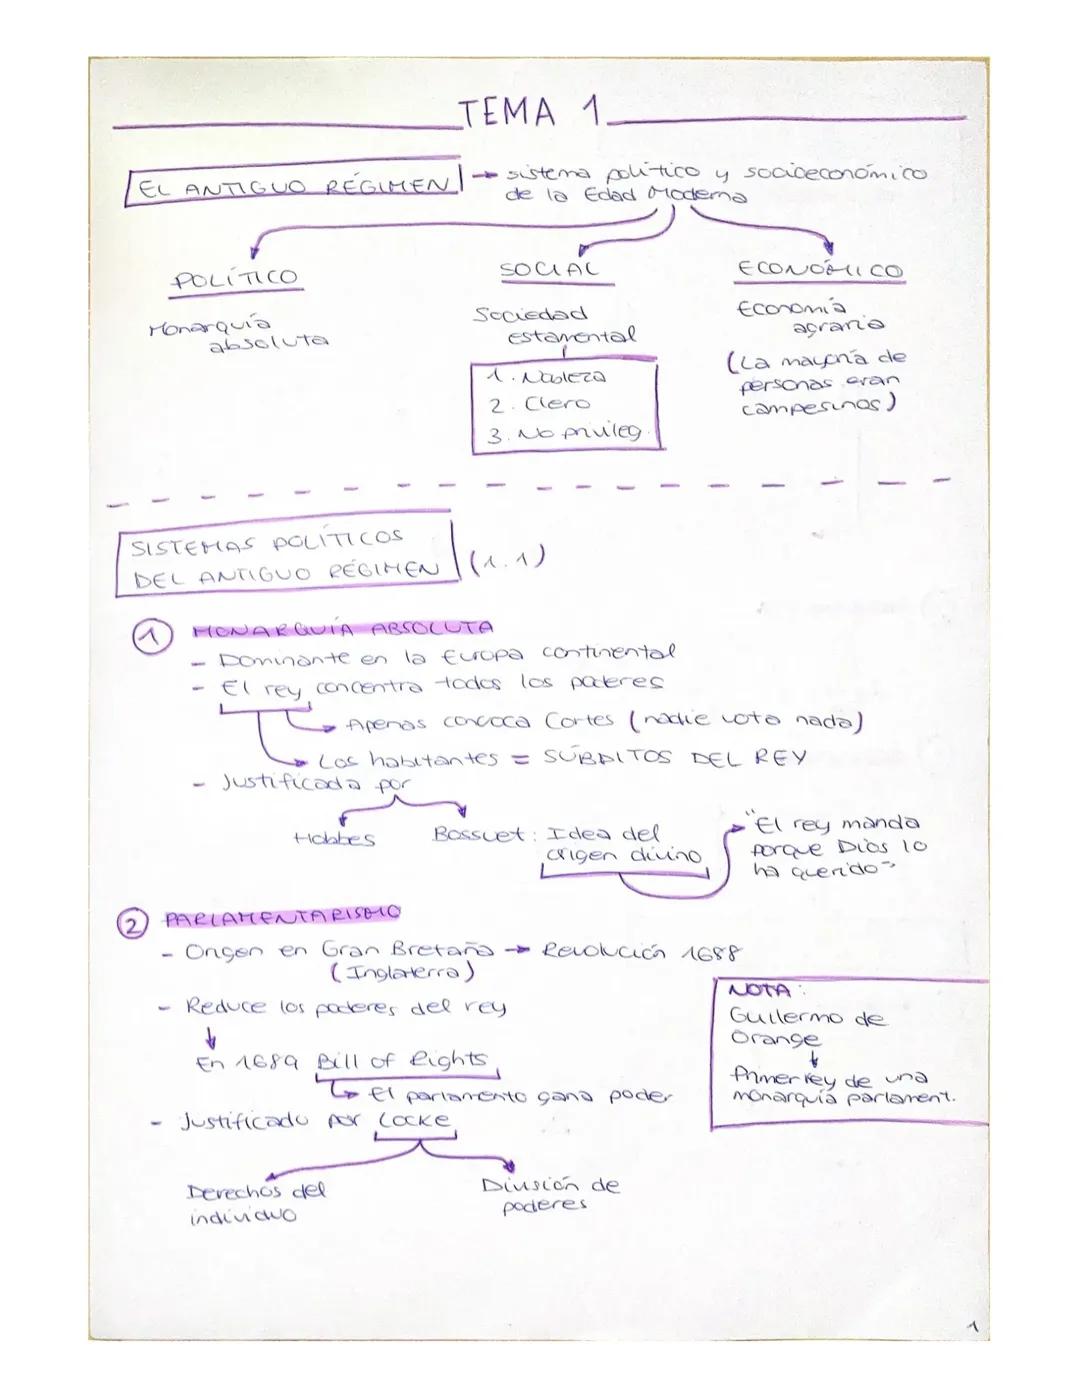 TEMA 1
EL ANTIGUO RÉGIMEN → sistema político y socioeconómico
de la Edad Moderna
POLÍTICO
Monarquía
absoluta
SOCIAL
Sociedad
estamental
1. Nobleza
2. Clero
3. No privileg.
ECONÓMICO
Economía
agraria
(La mayoría de
personas eran
campesinos)
SISTEMAS POLÍTICOS
DEL ANTIGUO RÉGIMEN (1.1)
1 MONARQUÍA ABSOLUTA
- Dominante en la Europa continental
- El rey concentra todos los poderes
→ Apenas convoca Cortes (nadie vota nada)
→ Los habitantes = SÚBDITOS DEL REY
- Justificada por
Hobbes
Bossuet: Idea del
origen divino
"El rey manda
porque Dios lo
ha querido"
2 PARLAMENTARISMO
- Origen en Gran Bretaña → Revolución 1688
(Inglaterra)
- Reduce los poderes del rey
↓
En 1689 Bill of Rights
→ El parlamento gana poder
- Justificado por Locke
Derechos del
individuo
División de
poderes
NOTA:
Guillermo de
Orange
↓
Primer rey de una
monarquía parlament.
1